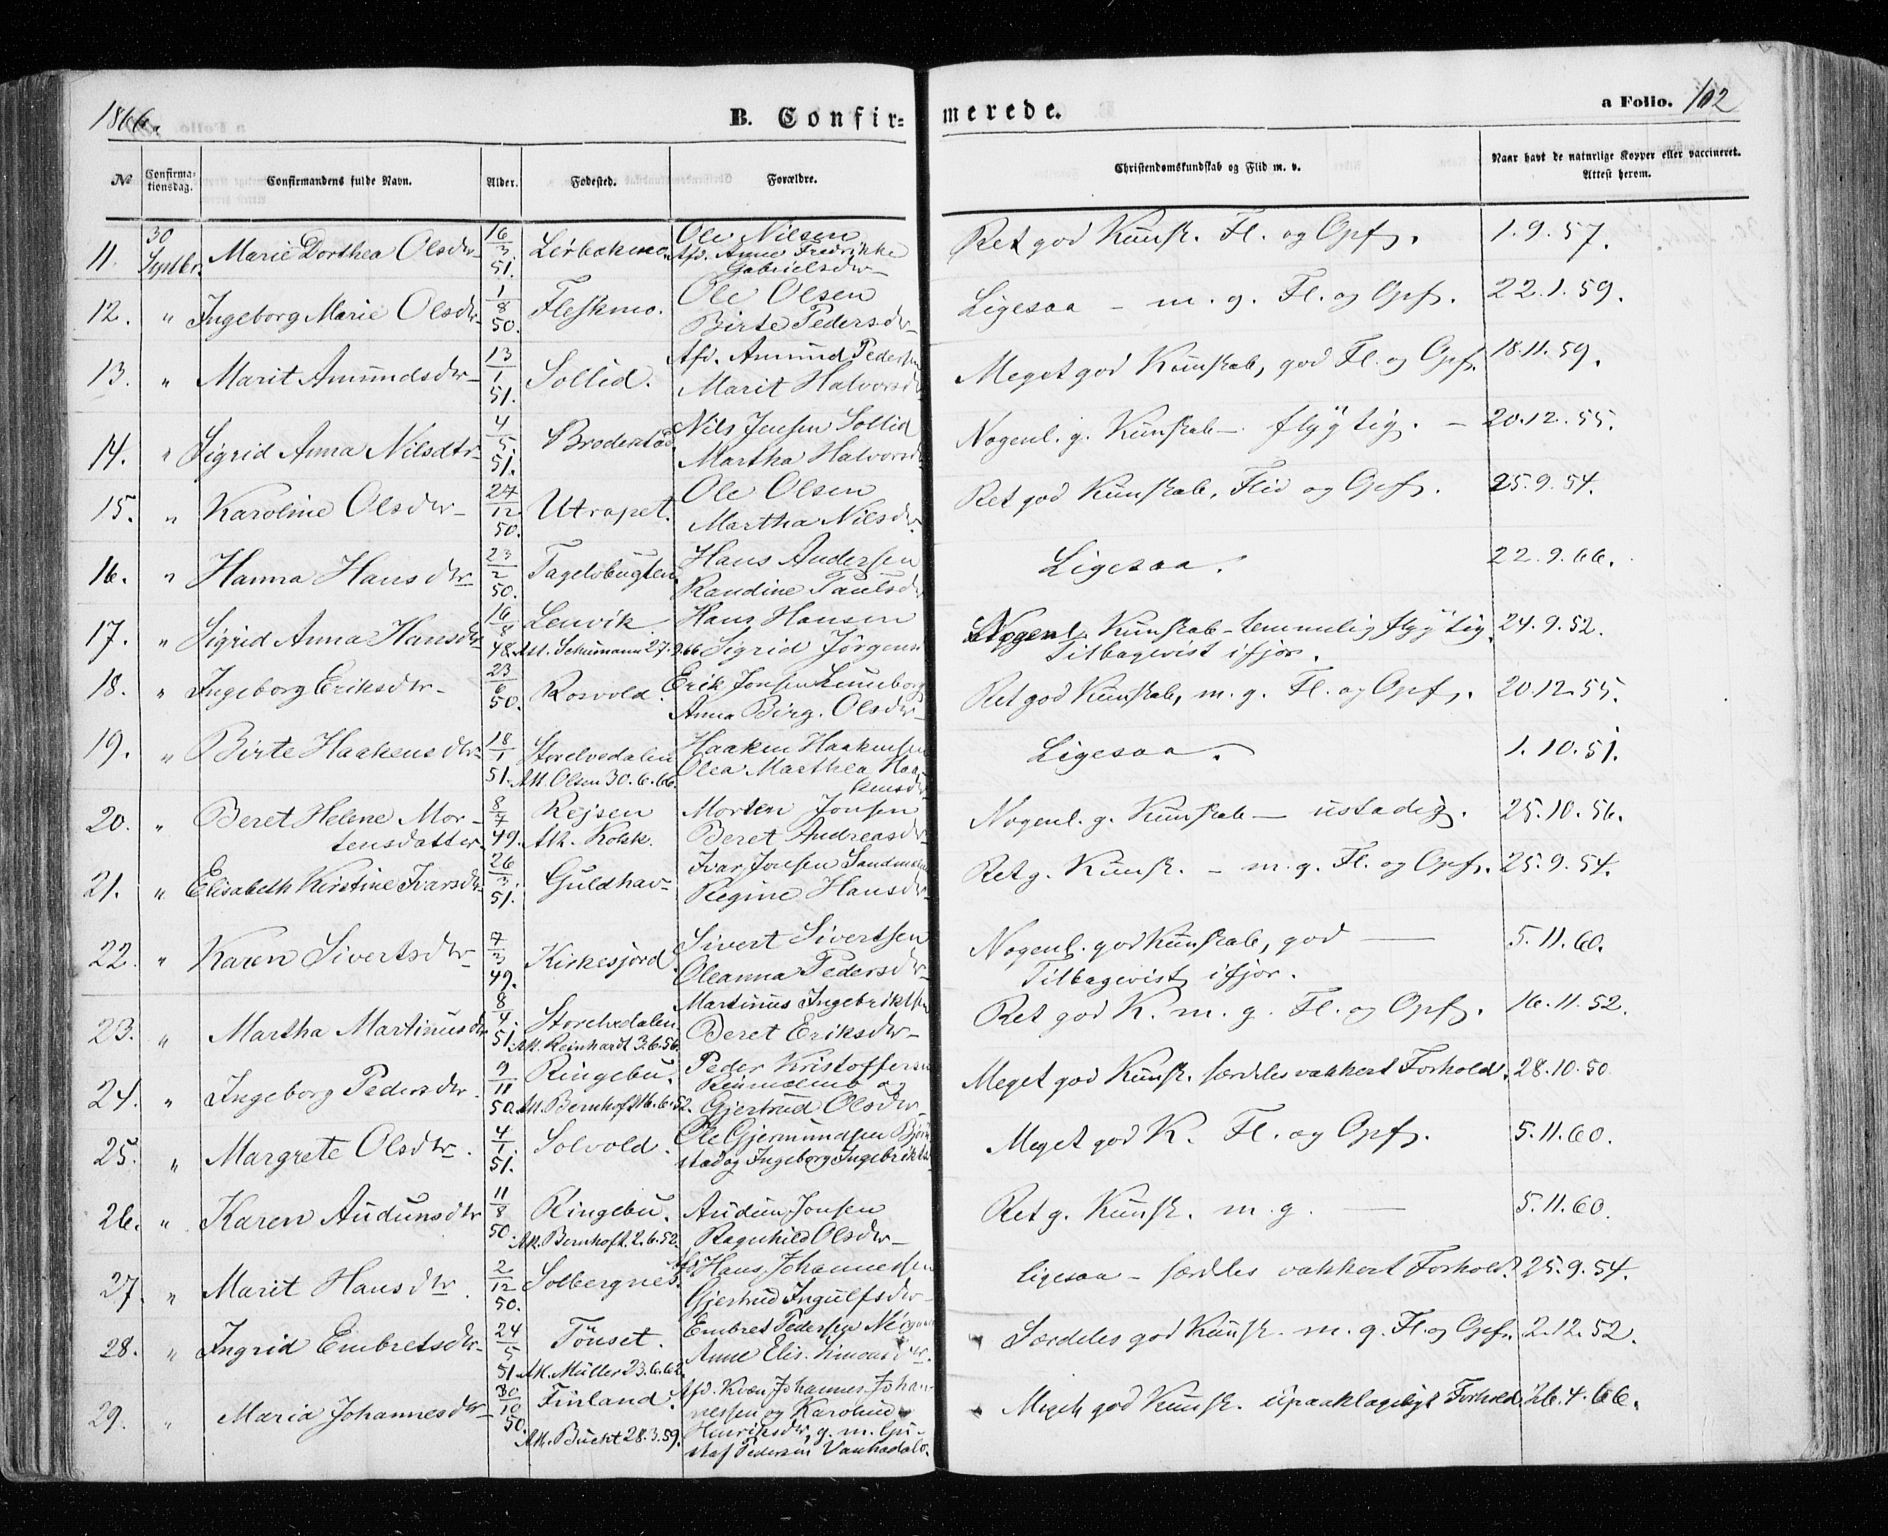 1866.
B. Confir-
merede.
a Folio. 102
No
Confirma-
tionsdag.
Confirmandens fulde Navn.
Alder.
Fødested.
Forældre.
Christendomskundskab og Flid m. v.
Naar havt de naturlige Kopper eller vaccineret.
Attest herom.
11. 30 Septbr. Marie Dorthea Olsdtr 16/3 51. Ole Nilsen
Afd. Anne Fredrikke
Gabrielsdtr
Ret god Kunsk. Fl. og Opf. 1.9.57.
12. " Ingeborg Marie Olsdtr 1/8 50. Fleskmo. Ole Olsen
Birte Pedersdtr
Ligesaa - m. g. Fl. og Opf. 22.1.59.
13. " Marit Amundsdtr 13/1 51. Sollid. Afd. Amund Pedersen
Marit Halvorsd
Meget god Kunskab, god Fl. og Opf. 18.11.59.
14. " Sigrid Anna Nilsdtr 4/5 51. Broderstad Nils Jensen Sollid
Martha Halvorsd
Nogenl. g. Kunskab - flygtig. - 20.12.55.
15. " Karoline Olsdtr 27/12 50. Utrapet. Ole Olsen
Martha Nilsdtr
Ret god Kunskab, Flid og Opf. 25.9.54.
16. " Hanna Hansdtr 23/2 50. Tagelvbugten. Hans Andersen
Randine Paulsd
Ligesaa. 22.9.66.
17. " Sigrid Anna Hansdtr 16/8 48. Lenvik Hans Hansen
Att. Schumann 27.9.66 Sigrid Jørgens
Nogenl. Kunskab - temmelig flygtig. 24.9.52.
Tilbagevist ifjor.
18. " Ingeborg Eriksdtr 23/6 50. Rosvold. Erik Jonsen
Anna Birg. Olsdtr
Ret god Kunskab, m. g. Fl. og Opf. 20.12.55.
19. " Birte Haakensdtr 18/1 51. Storelvedalen Haaken Haakensen
Att. Olsen 30.6.66. Olea Marthea Haa-
kensdtr
Ligesaa. 1.10.51.
20. " Beret Helene Mor- 8/7 49. Rejsen Morten Jonsen
tensdatter Att. Kolsk. Beret Andreasdtr
Nogenl. g. Kunskab - ustadig. 25.10.56.
21. " Elisabeth Kirstine Ivarsdtr 26/3 51. Guldhav Ivar Jonsen
Regine Hansdtr
Ret g. Kunsk. - m. g. Fl. og Opf. 25.9.54.
22. " Karen Sivertsdtr 7/3 49. Kirkesjord. Sivert Sivertsen
Oleanna Pedersdtr
Nogenl. god Kunskab, god — 5.11.60.
Tilbagevist ifjor.
23. " Martha Martinusdtr 8/4 51. Storelvedalen Martinus Ingebriktsen
Att. Reinhardt 3.6.56. Beret Eriksdtr
Ret god K. m. g. Fl. og Opf. 16.11.52.
24. " Ingeborg Pedersdtr. 9/11 50. Ringebu. Peder Kristoffersen
og
Att. Bernhoft 16.6.52. Gjertrud Olsdtr
Meget god Kunsk. særdeles vakkert Forhold. 28.10.50
25. " Margrete Olsdtr. 4/1 51. Solvold. Ole Gjermundsen Bjørn
stad og Ingeborg Ingebrikts
Meget god K. Fl. og Opf. 5.11.60.
26. " Karen Audunsdtr 11/8 50. Ringebu. Audun Jonsen
Att. Bernhoft. 2.6.52. Ragnhild Olsdtr
Ret g. Kunsk. m. g. — 5.11.60.
27. " Marit Hansdtr. 2/12 50. Solbergnes. Afd Hans Johannessen
Gjertrud Ingulfsdtr
ligesaa - særdles vakkert Forhold. 25.9.54.
28. " Ingrid Embretsdtr 24/5 51. Tönset. Embret Pedersen
Att. Müller 23.6.62. Anne Elis. Simonsdtr.
Særdeles god Kunsk. m. g. Fl. og Opf. 2.12.52.
29. " Maria Johannesdtr 30/10 50. Finland. Afd. Kvæn Johannes Johan-
nessen og Karoline
Att. Buckt 28.3.59. Henriksdtr, g. m. Gu-
staf Pedersen
Meget god Kunsk. upaaklageligt Forhold 26.4.66.